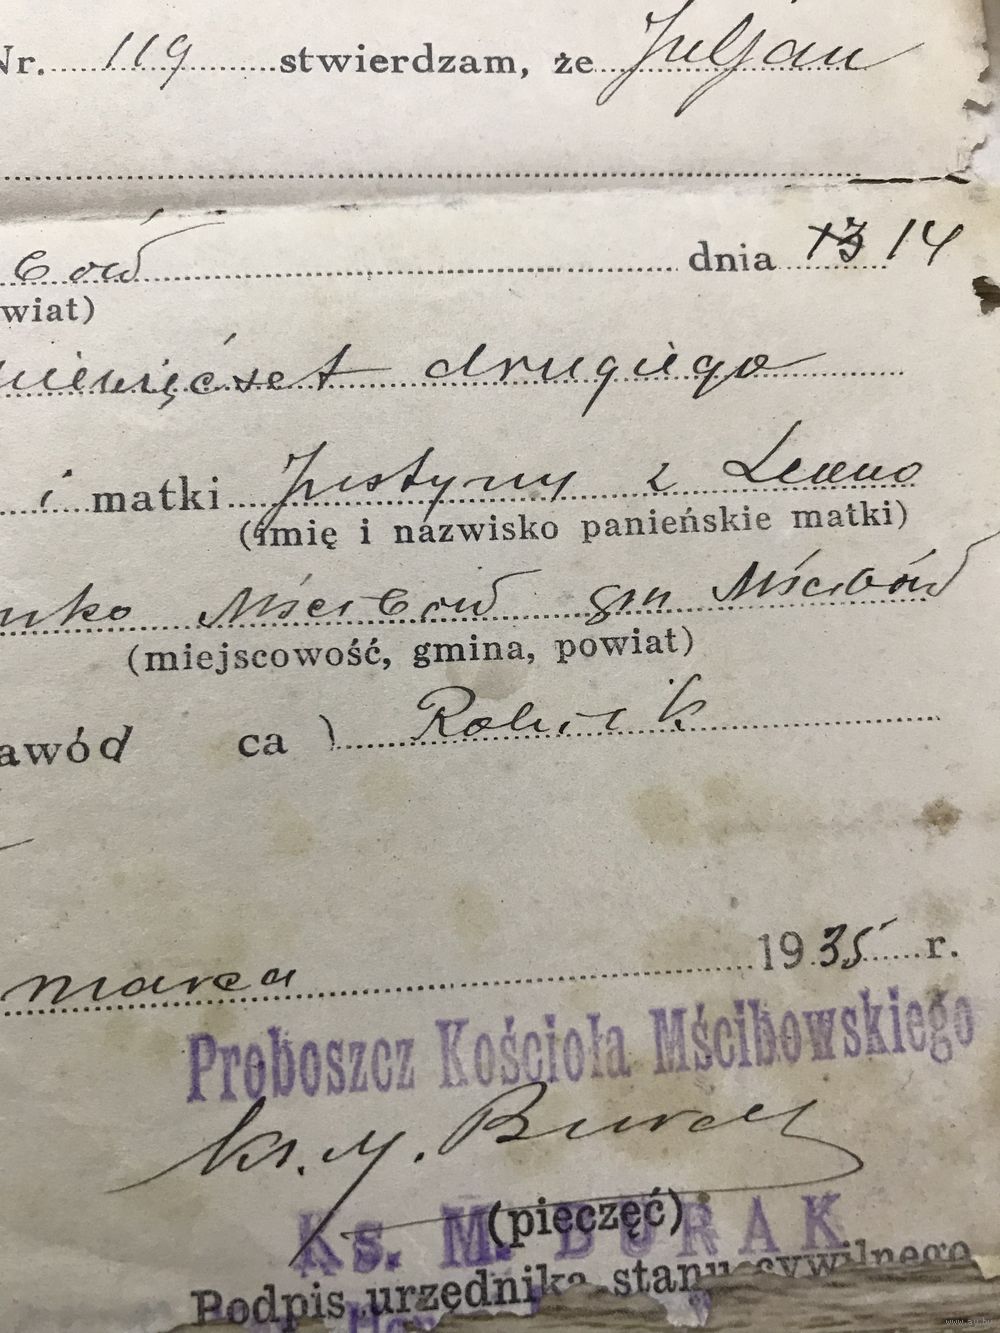 Nr. 119 stwierdzam, że Juljan
dnia 13 14
wiat)
dziewięćset drugiego
i matki Justyny z
(imię i nazwisko panieńskie matki)
Mścibów gm Mścibów
(miejscowość, gmina, powiat)
awód ca ) Rolnik
marca 1935 r.
Proboszcz Kościoła Mścibowskiego
ks. M. Burak
(pieczęć)
Ks. M. BURAK
Podpis urzędnika stanu cywilnego
www.ay.by